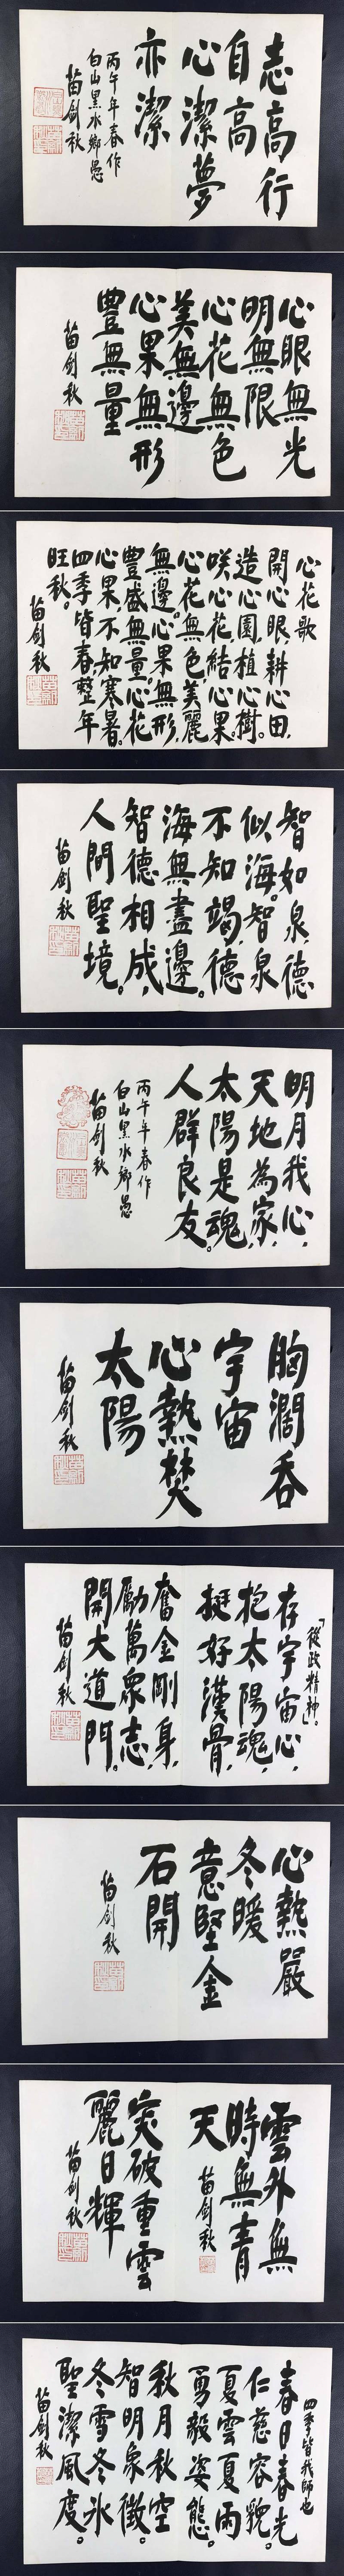 志高行
自高
心潔夢
亦潔
丙午年春作
白山黑水鄉愚
苗劍秋
心眼無光
明無限
心花無色
美無邊
心果無形
豐無量
苗劍秋
心花歌
開心眼，耕心田，
造心園，植心樹。
咲心花，結心果。
心花無色，美麗
無邊。心果無形，
豐盛無量。心花
心果，不知寒暑。
四季皆春，整年
旺秋。
苗劍秋
智如泉，德
似海。智泉
不知竭，德
海無盡邊。
智德相成，
人間聖境。
苗劍秋
明月我心，
天地為家，
太陽是魂，
人群良友。
丙午年春作
白山黑水鄉愚
苗劍秋
胸濶吞
宇宙
心熱焚
太陽
苗劍秋
「從政精神」。
存宇宙心，
抱太陽魂，
挺好漢骨，
奮金剛身，
勵萬眾志，
開大道門。
苗劍秋
心熱嚴
冬暖
意堅金
石開
苗劍秋
雲外無
時無青
天
苗劍秋
突破重雲
麗日輝
苗劍秋
四季皆我師也
春日春光
仁慈容貌。
夏雲夏雨
勇毅姿態。
秋月秋空
智明象徵。
冬雪冬氷
聖潔風度。
苗劍秋